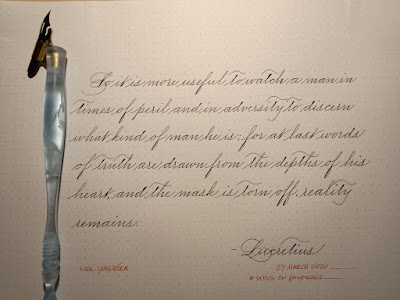 So it is more useful to watch a man in
times of peril, and in adversity to discern
what kind of man he is; for at last words
of truth are drawn from the depths of his
heart, and the mask is torn off, reality
remains.
-Lucretius
27 MARCH 2020